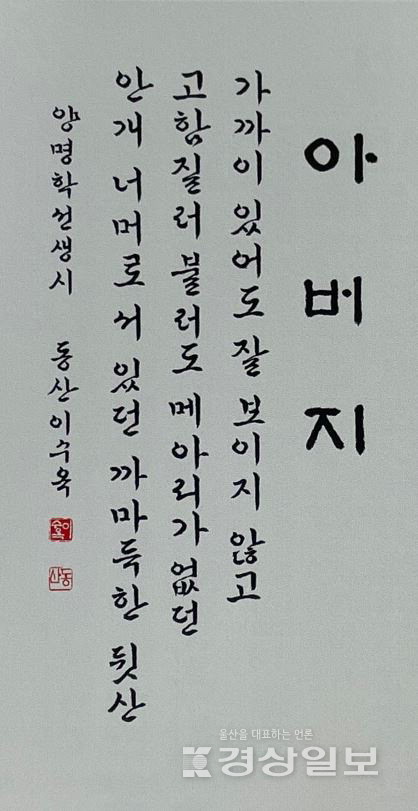 아버지
가까이 있어도 잘 보이지 않고
고함질러 불러도 메아리가 없던
안개 너머로 서 있던 까마득한 뒷산
양명학선생시 동산이수옥
이수옥
동산
울산을 대표하는 언론
경상일보